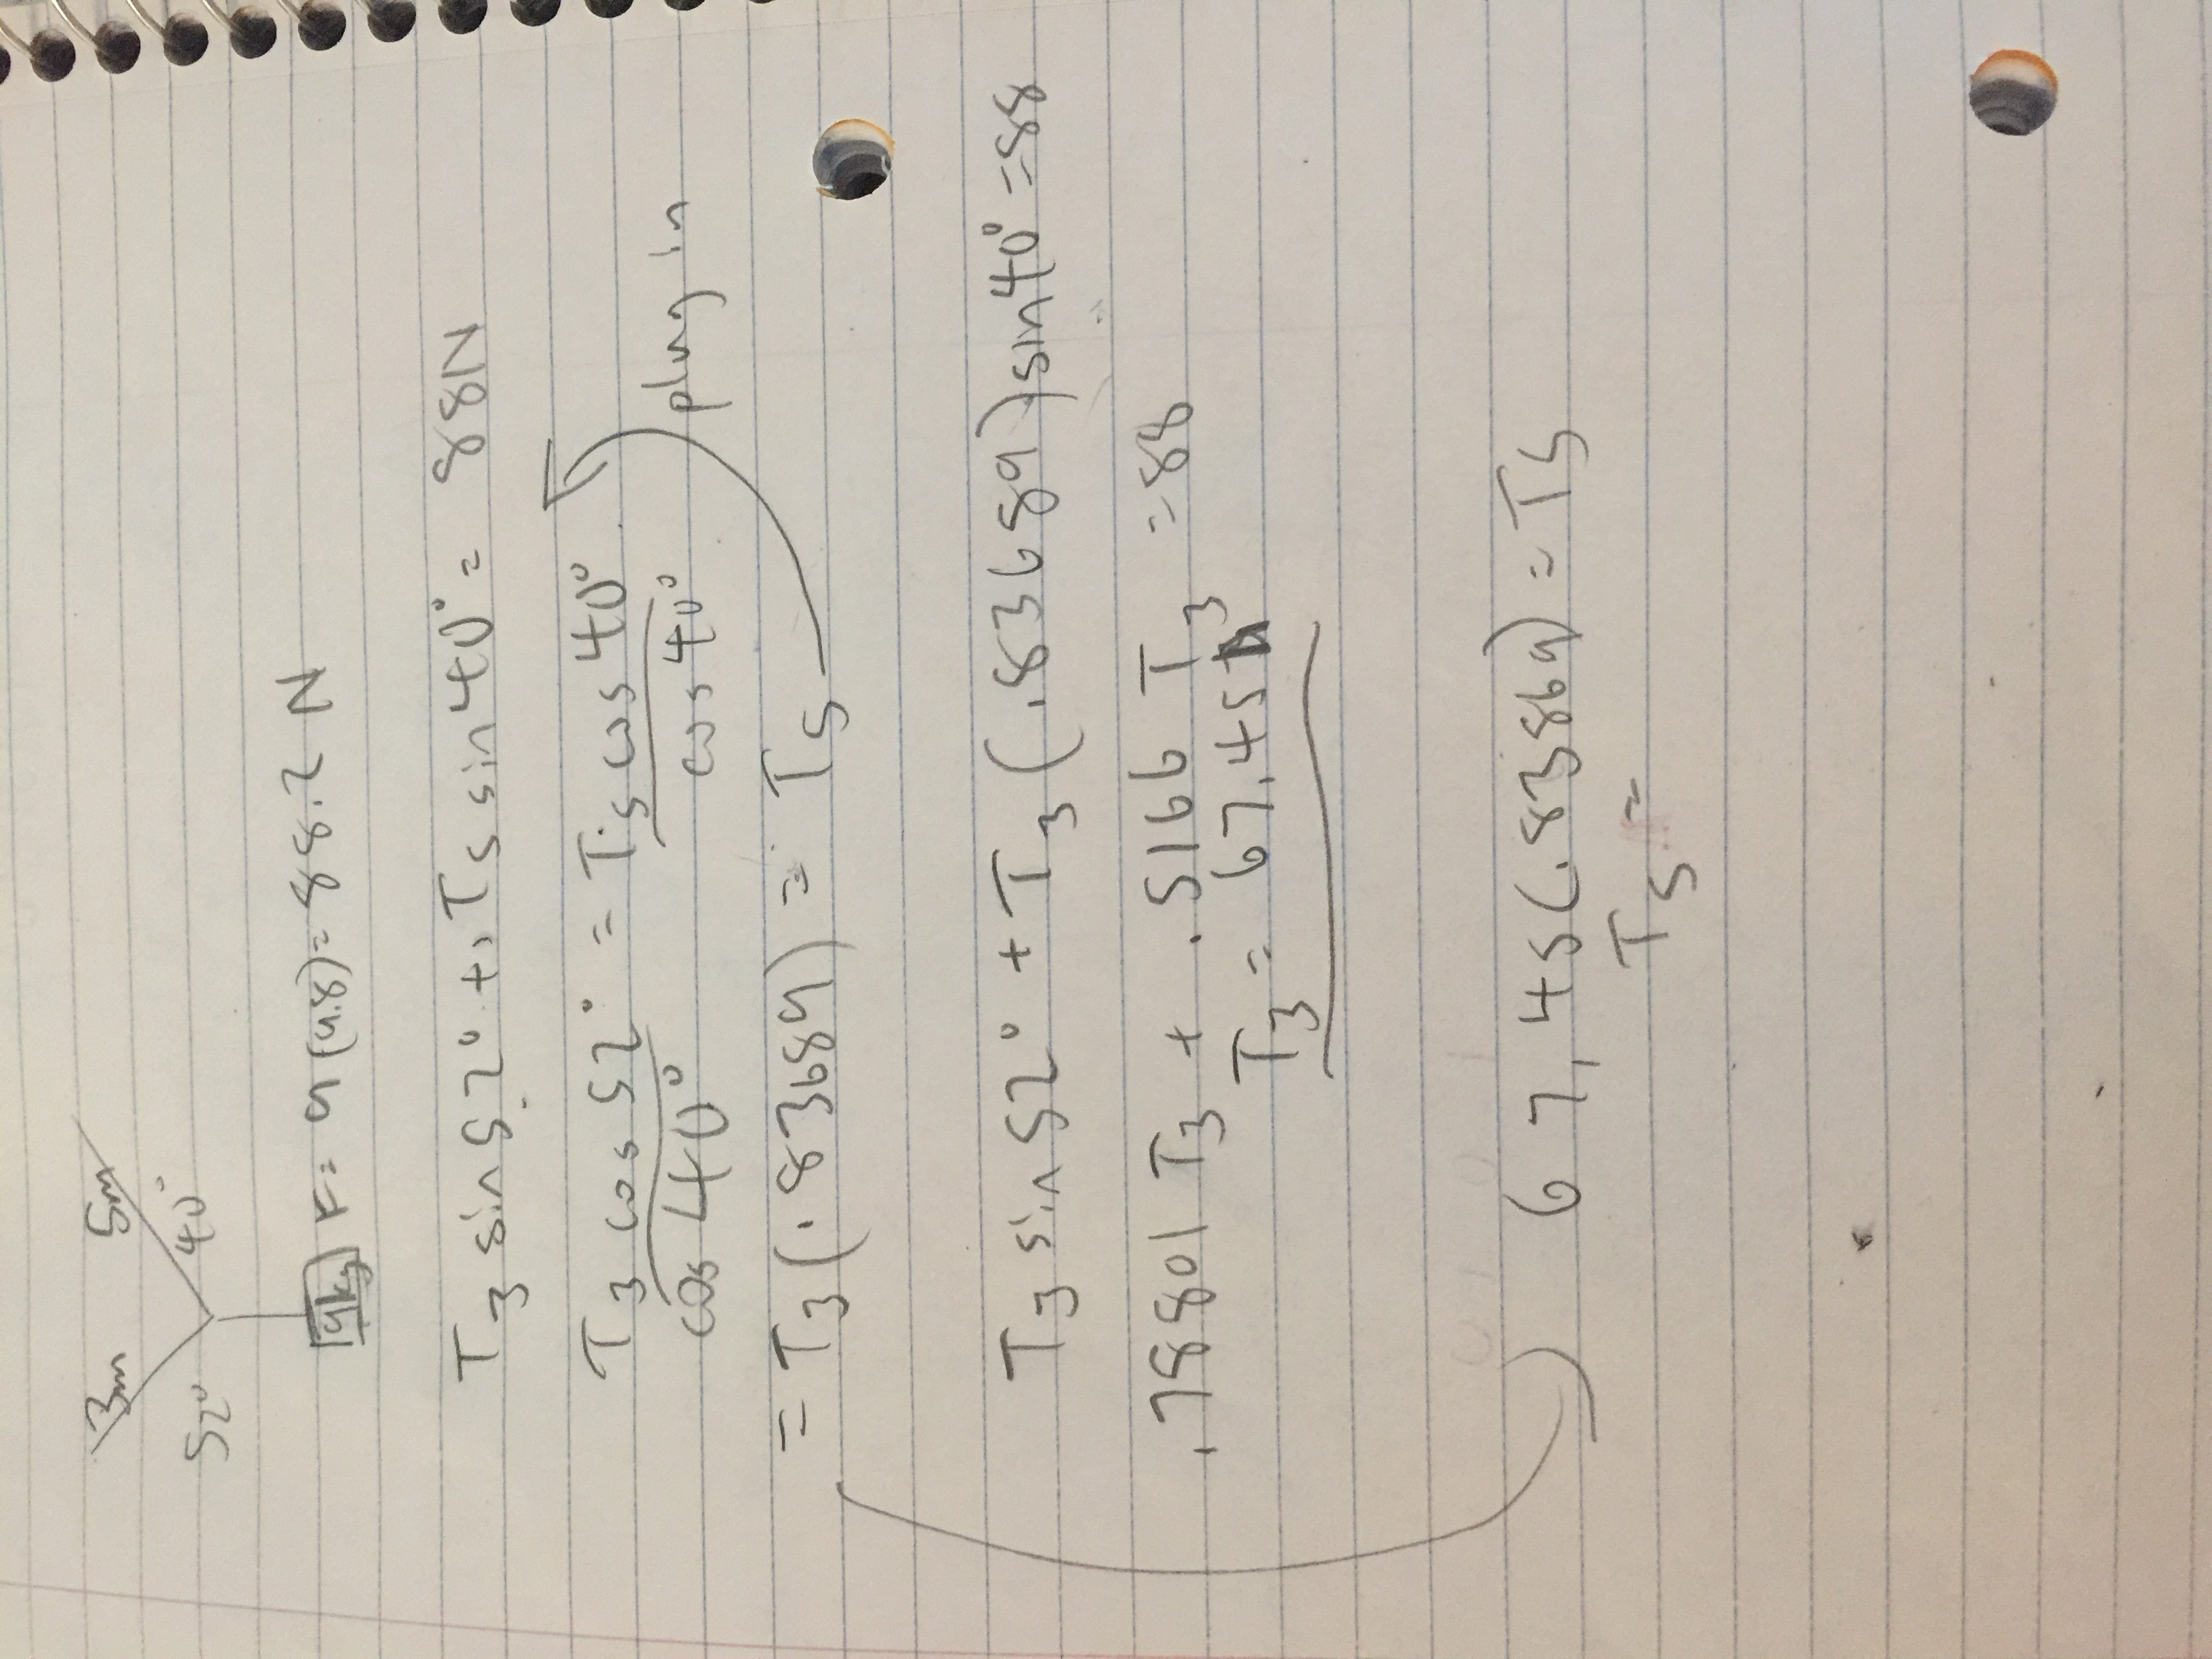 3m 5m
52° 40°
9kg F = 9(9.8) = 88.2 N
T3 sin 52° + T5 sin 40° = 88N
T3 cos 52° = T5 cos 40°
cos 40° cos 40° plug in
= T3 (.83689) = T5
T3 sin 52° + T3 (.83689) sin 40° = 88
.78801 T3 + .5166 T3 = 88
T3 = 67.45
67.45 (.83869) = T5
T5 =